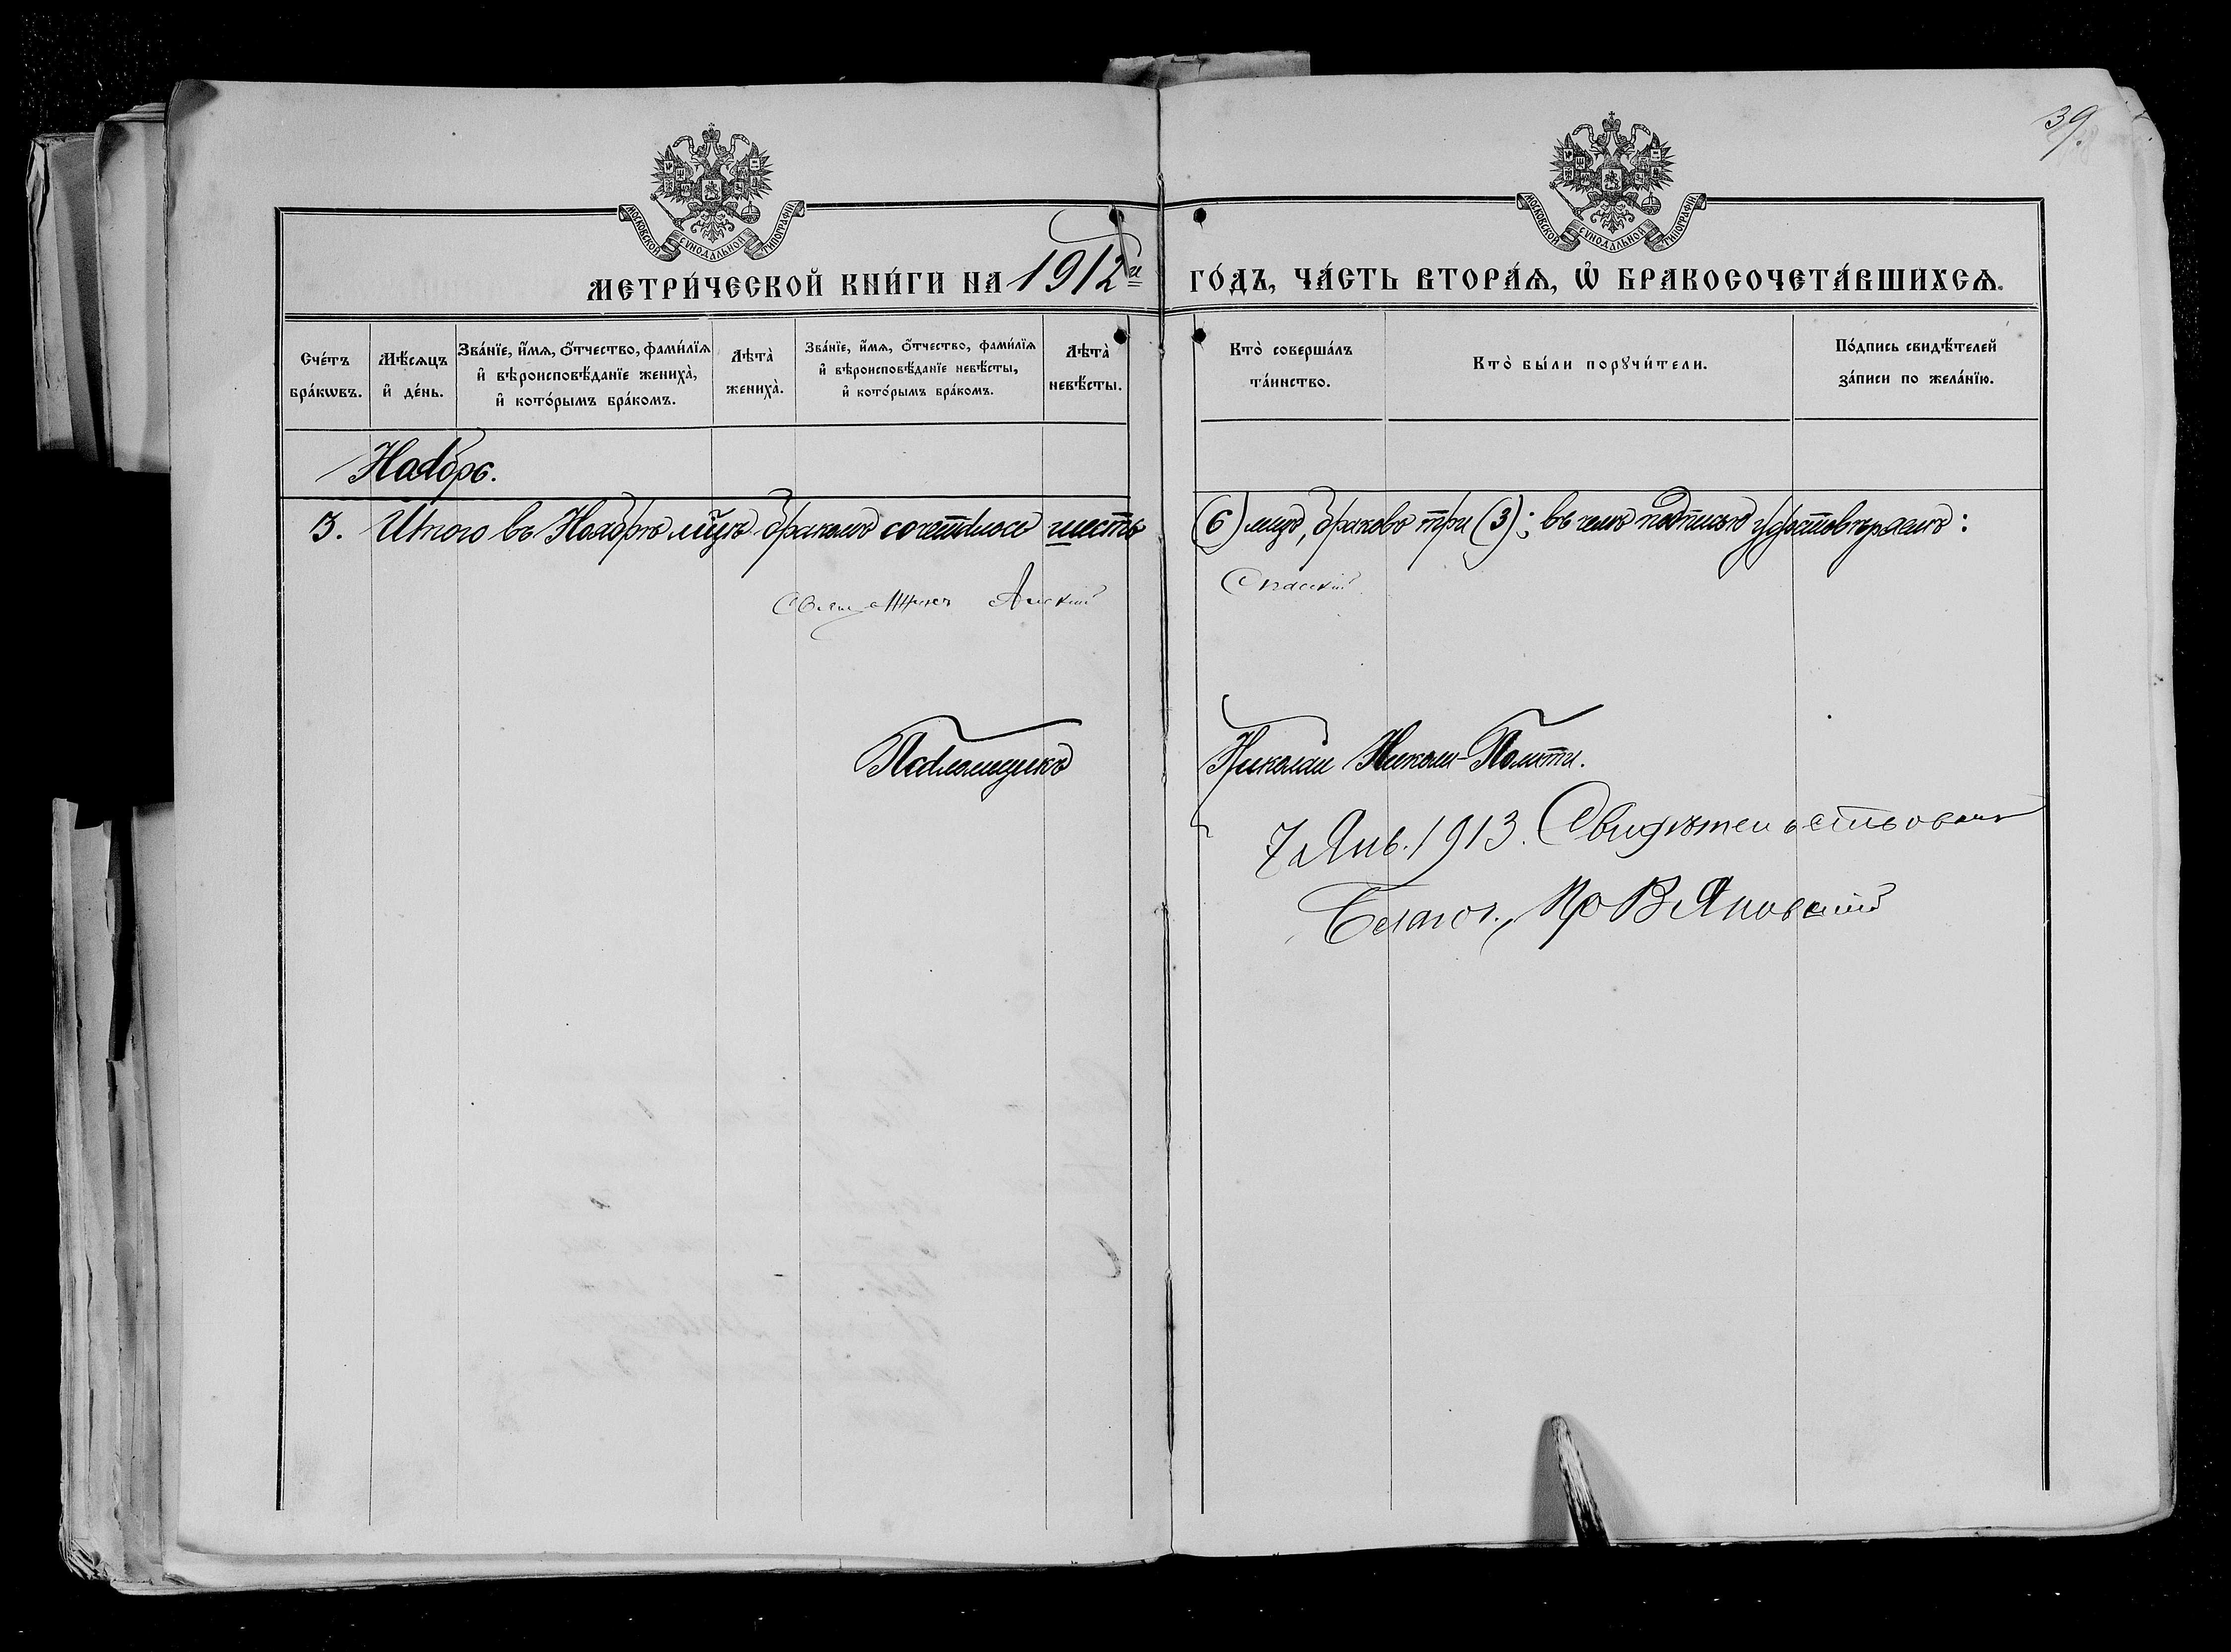 39.
МОСКОВСКОЙ СѴНОДАЛЬНОЙ ТИПОГРАФІИ
МОСКОВСКОЙ СѴНОДАЛЬНОЙ ТИПОГРАФІИ
МЕТРИ́ЧЕСКОЙ КНИ́ГИ НА 1912й ГО́ДЪ, ЧА́СТЬ ВТОРА́Ѧ, Ѡ҆ БРАКОСОЧЕТА́ВШИХСѦ.
Сче́тъ бра́кѡвъ.
Мѣ́сѧцъ и҆ де́нь.
Зва́нїе, и҆́мѧ, ѻ҆́тчество, фами́лїѧ и҆ вѣроисповѣ́данїе жениха̀, и҆ кото́рымъ бра́комъ.
Лѣта̀ жениха̀.
Зва́нїе, и҆́мѧ, ѻ҆́тчество, фами́лїѧ и҆ вѣроисповѣ́данїе невѣ́сты, и҆ кото́рымъ бра́комъ.
Лѣта̀ невѣ́сты.
Кто̀ соверша́лъ та́инство.
Кто̀ бы́ли порꙋчи́тели.
По́дпись свидѣ́телей за́писи по жела́нїю.
Ноябрь.
3. Итого въ Ноябрѣ мцѣ бракомъ сочеталось шесть (6) лицъ, браковъ три (3); въ чемъ подписью удостовѣряемъ:
Священникъ Спасскій
Псаломщикъ Николай
7 Янв. 1913. Свидѣтельствовалъ
Благоч., Пр В Яновскій